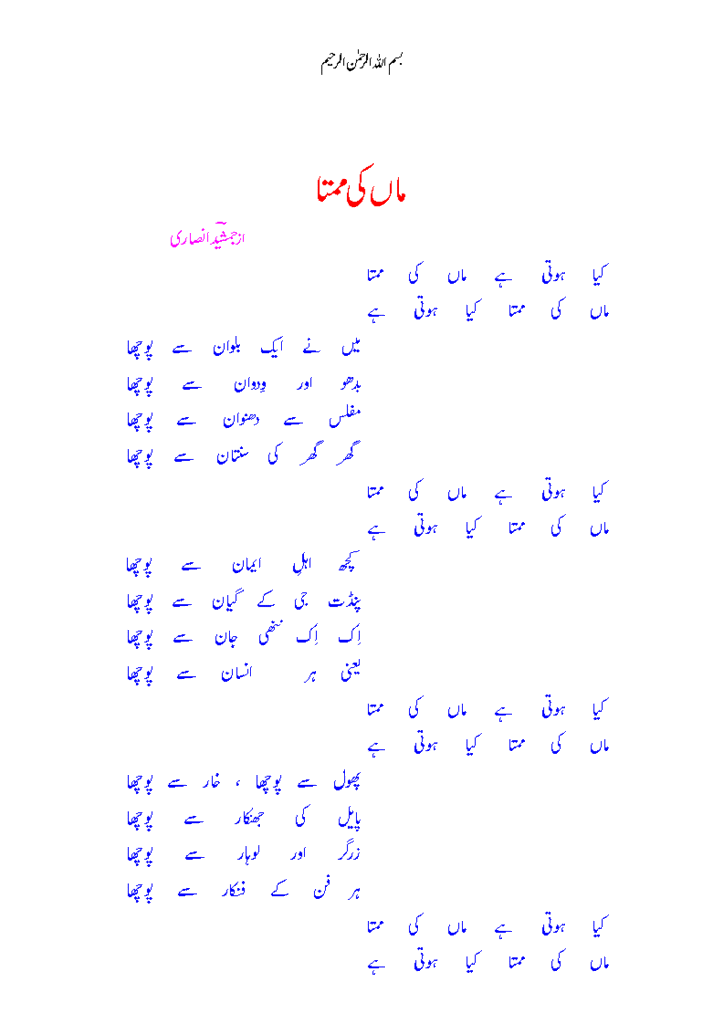 بسم اللہ الرحمٰن الرحیم
ماں کی ممتا
از جمشیدؔ انصاری
کیا ہوتی ہے ماں کی ممتا
ماں کی ممتا کیا ہوتی ہے
میں نے ایک بلوان سے پوچھا
بدھو اور وِدوان سے پوچھا
مفلس سے دھنوان سے پوچھا
گھر گھر کی سنتان سے پوچھا
کیا ہوتی ہے ماں کی ممتا
ماں کی ممتا کیا ہوتی ہے
کچھ اہلِ ایمان سے پوچھا
پنڈت جی کے گیان سے پوچھا
اِک اِک ننھی جان سے پوچھا
یعنی ہر انسان سے پوچھا
کیا ہوتی ہے ماں کی ممتا
ماں کی ممتا کیا ہوتی ہے
پھول سے پوچھا ، خار سے پوچھا
پایل کی جھنکار سے پوچھا
زرگر اور لوہار سے پوچھا
ہر فن کے فنکار سے پوچھا
کیا ہوتی ہے ماں کی ممتا
ماں کی ممتا کیا ہوتی ہے